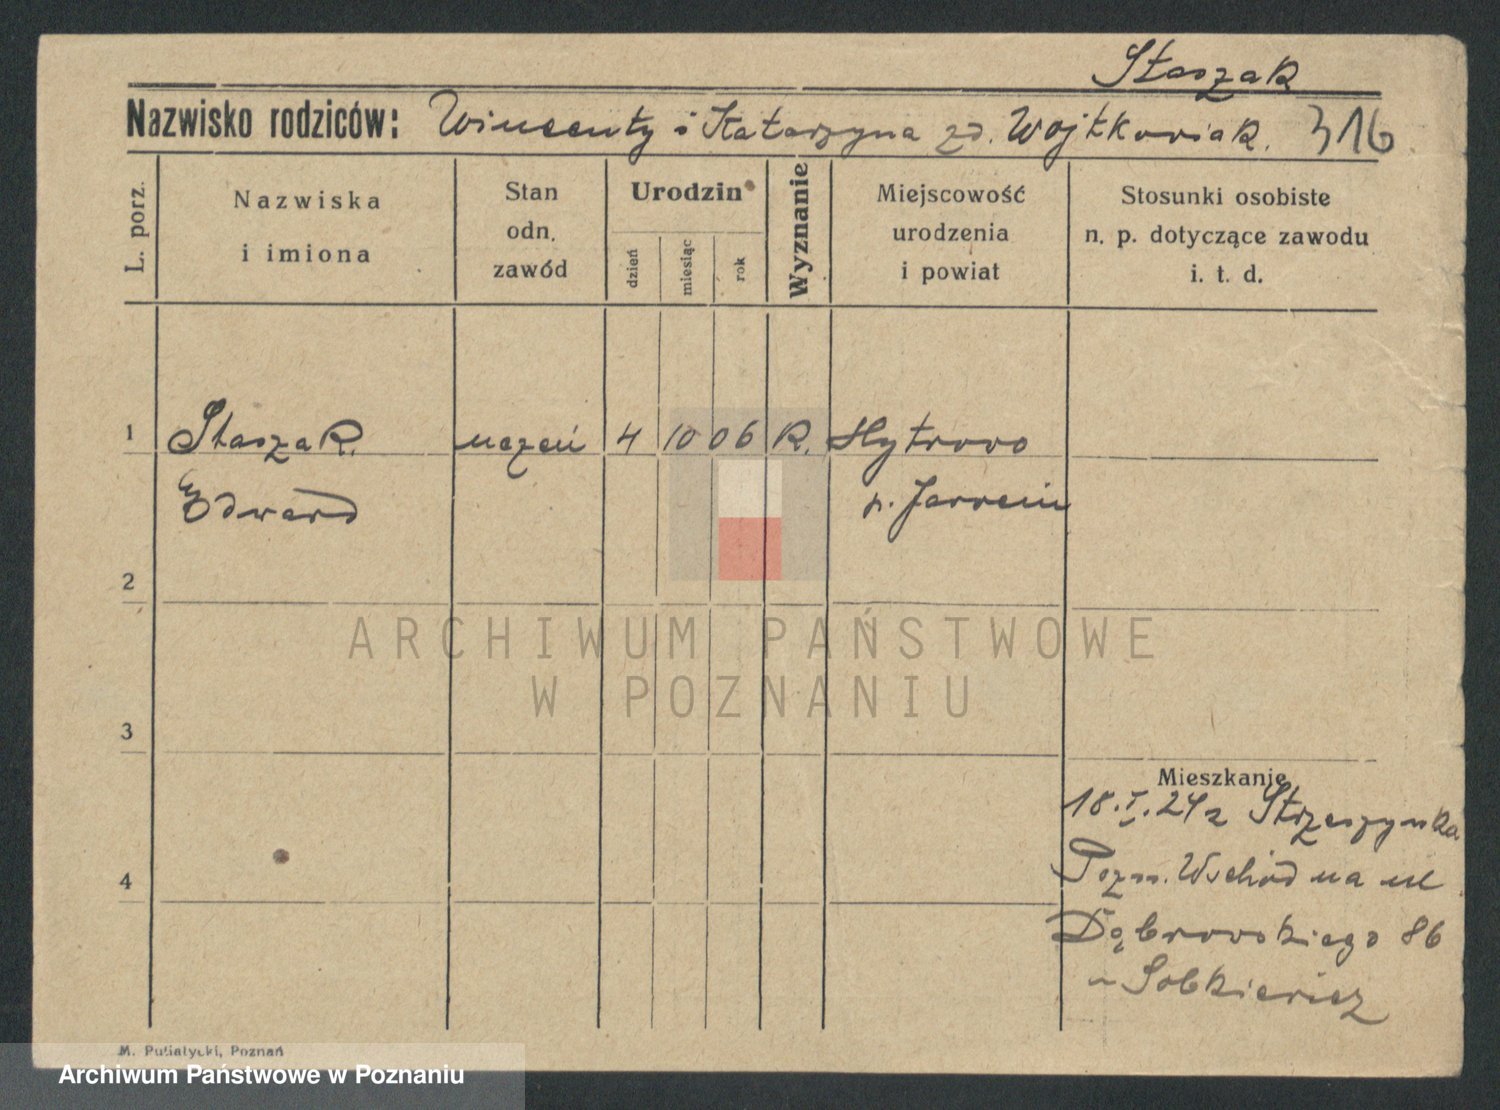 Staszak
Nazwisko rodziców: Wincenty i Katarzyna zd. Wojtkowiak. 316
L. porz.
Nazwiska
i imiona
Stan
odn.
zawód
Urodzin
dzień
miesiąc
rok
Wyznanie
Miejscowość
urodzenia
i powiat
Stosunki osobiste
n. p. dotyczące zawodu
i. t. d.
1 Staszak uczeń 4 10 06 R. Hytrowo
Edward p. Jarocin
2
3
Mieszkanie
18.I.24 z Strzeszynka
Pozn. Wschód na ul
4
Dąbrowskiego 86
Sobkiewicz
ARCHIWUM PAŃSTWOWE
W POZNANIU
M. Putiatycki, Poznań
Archiwum Państwowe w Poznaniu